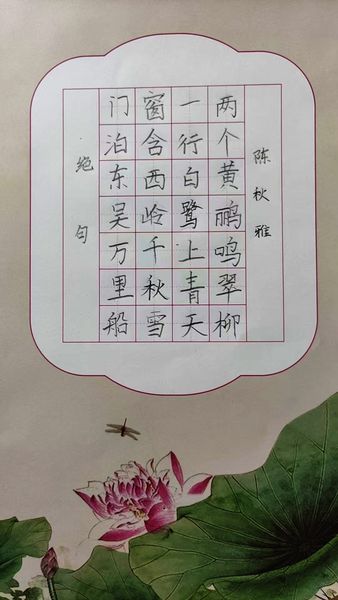 陈秋雅
两个黄鹂鸣翠柳
一行白鹭上青天
窗含西岭千秋雪
门泊东吴万里船
绝句